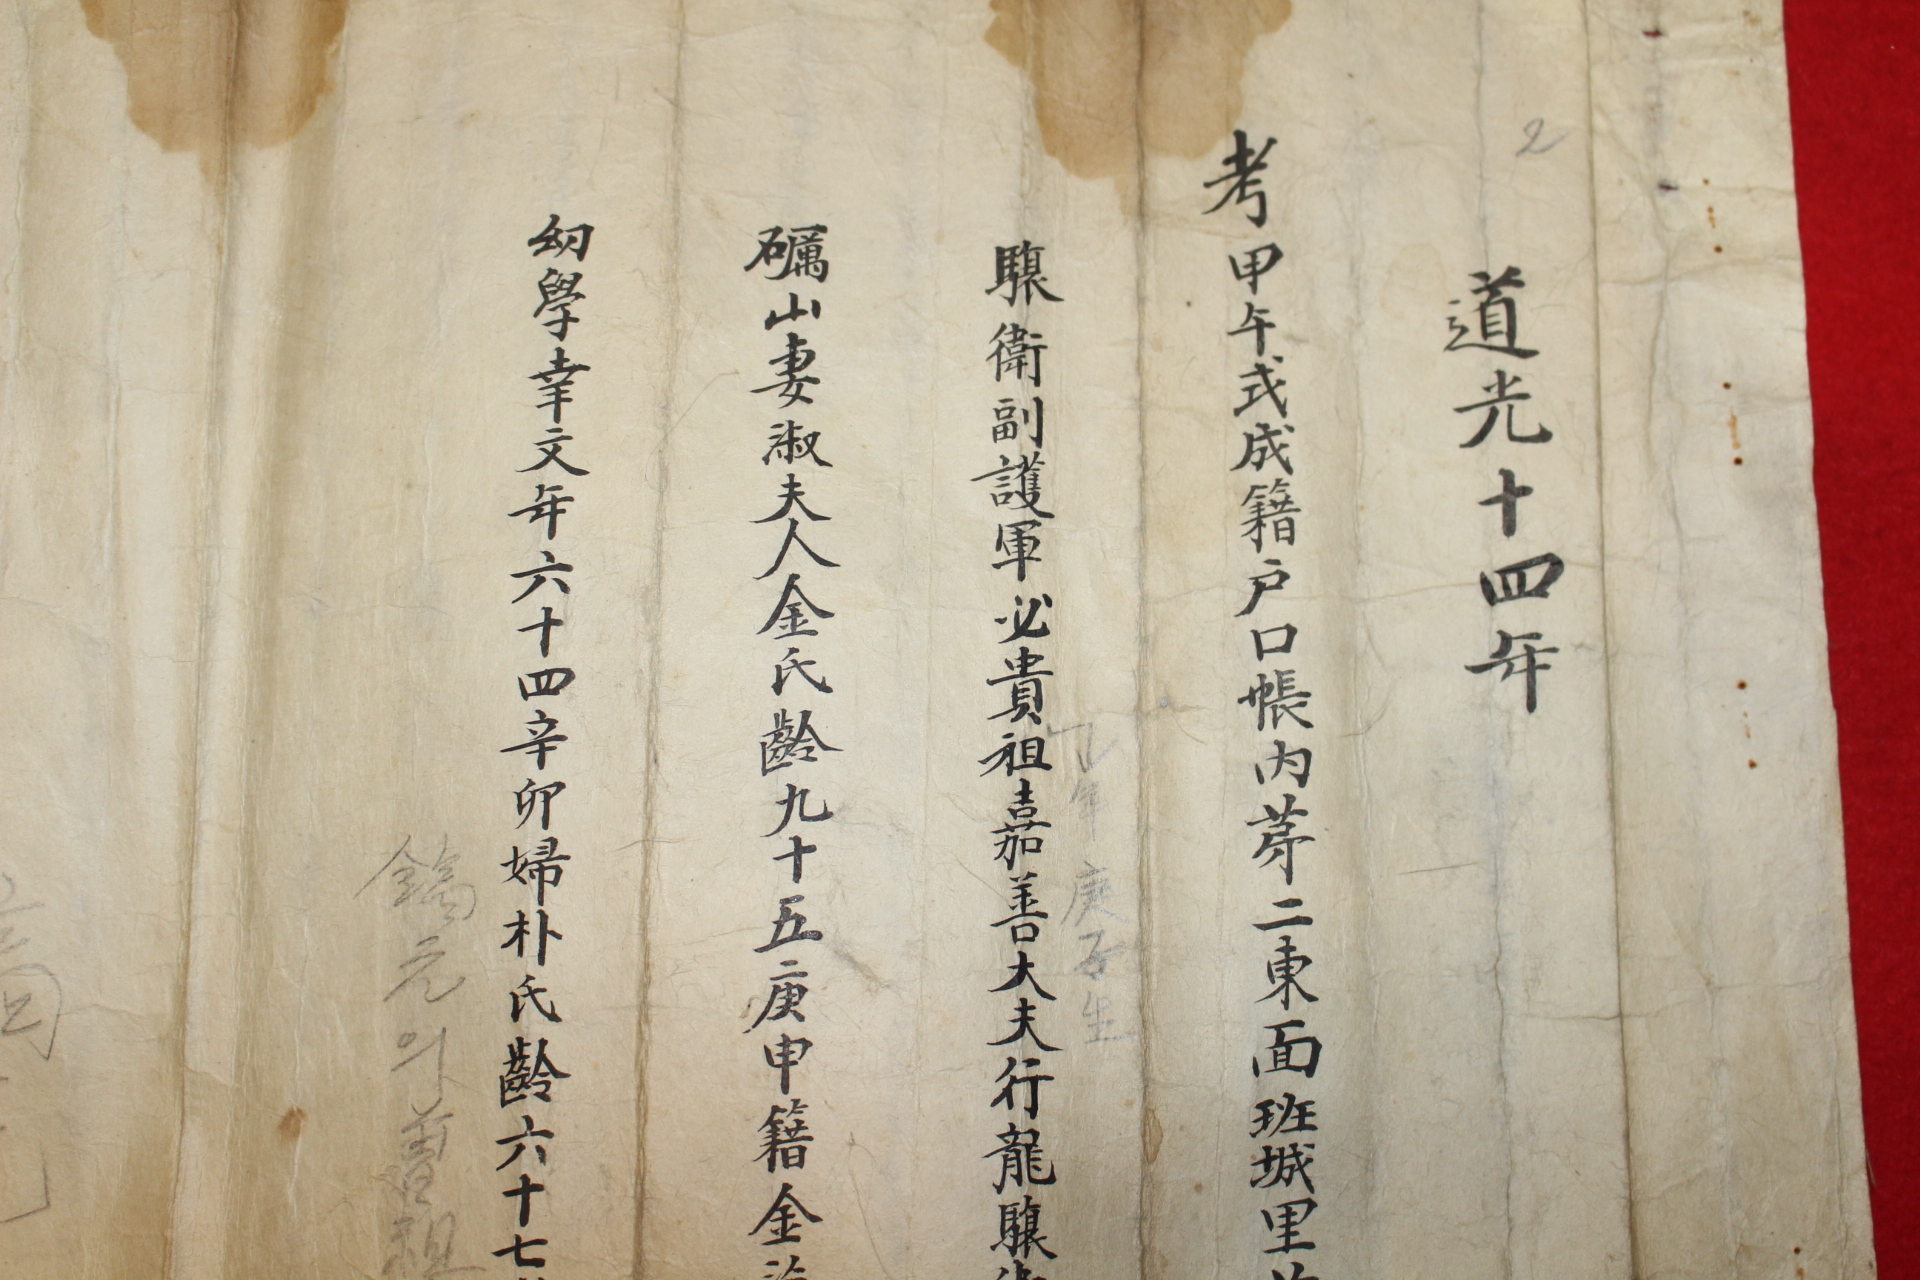 2
道光十四年
考甲午式成籍户口帳內苐二東面班城里
乙年庚子生
驤衛副護軍必貴祖嘉善大夫行龍驤
礪山妻淑夫人金氏齡九十五庚申籍金
幼學幸文年六十四辛卯婦朴氏齡六十七
鎬元의曾祖